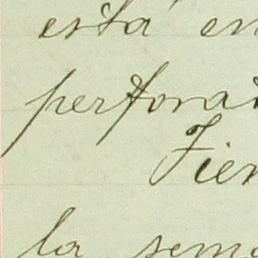 está en
perfora
Tien
la sema